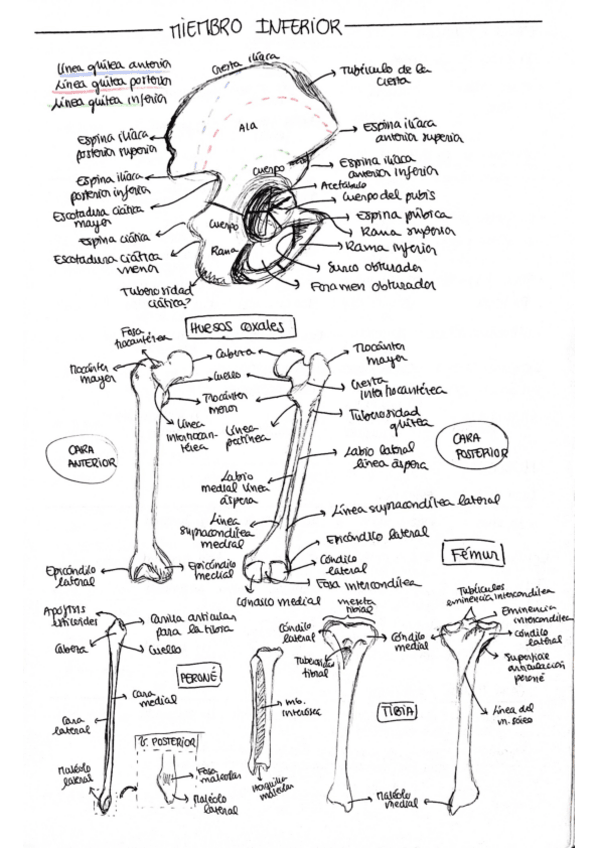 MIEMBRO INFERIOR
Línea glútea anterior
Línea glútea posterior
Línea glútea inferior
Cresta ilíaca
Tubérculo de la
cresta
Ala
Espina ilíaca
posterior superior
Espina ilíaca
anterior superior
Cuerpo
Espina ilíaca
anterior inferior
Espina ilíaca
posterior inferior
Acetábulo
Cuerpo del pubis
Escotadura ciática
mayor
Espina púbica
Cuerpo
Rama superior
Espina ciática
Rama inferior
Escotadura ciática
menor
Rama
Surco obturador
Tuberosidad
ciática?
Foramen obturador
HUESOS COXALES
Fosa
trocantérea
Cabeza
Trocánter
mayor
Trocánter
mayor
Cuello
Cresta
intertrocantérea
Trocánter
menor
Tuberosidad
glútea
Línea
intertrocan-
térea
Línea
pectínea
CARA
ANTERIOR
CARA
POSTERIOR
Labio lateral
línea áspera
Labio
medial línea
áspera
Línea supracondílea lateral
Línea
supracondílea
medial
Epicóndilo lateral
FÉMUR
Epicóndilo
lateral
Epicóndilo
medial
Cóndilo
lateral
Fosa intercondílea
Cóndilo medial
Apófisis
estiloides
Carilla articular
para la tibia
Cabeza
Cuello
PERONÉ
Cara
medial
Cara
lateral
Maléolo
lateral
V. POSTERIOR
Fosa
maleolar
Maléolo
lateral
mb.
interósea
Horquilla
maleolar
meseta
tibial
Cóndilo
lateral
Cóndilo
medial
Tuberosidad
tibial
TIBIA
Tubérculos
eminencia intercondílea
Eminencia
intercondílea
Cóndilo
lateral
Superficie
articulación
peroné
Línea del
m. sóleo
Maléolo
medial